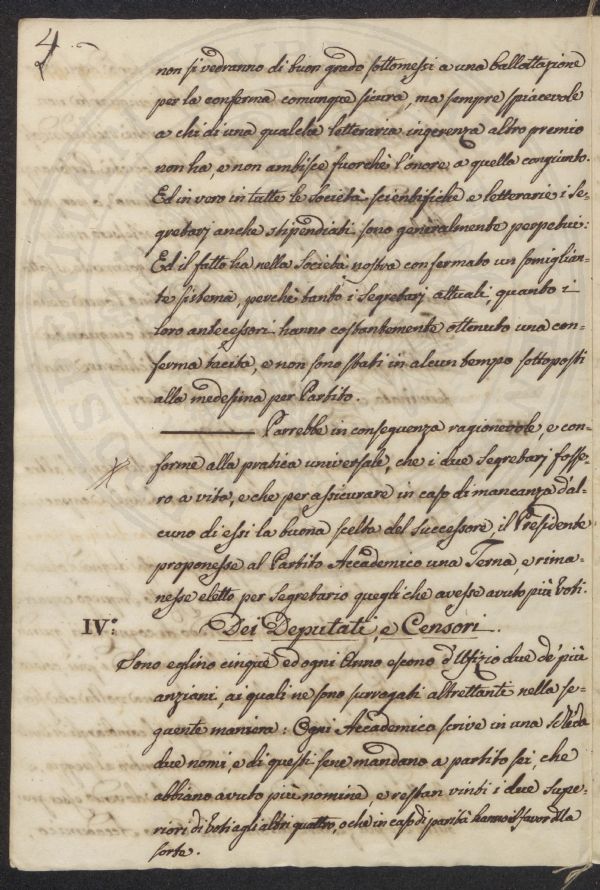 4.
non si vedranno di buon grado sottomessi a una ballottazione
per la conferma comunque sicura, ma sempre spiacevole
a chi di una qualche letteraria ingerenza altro premio
non ha, e non ambisce fuorchè l'onore a quella congiunto.
Ed in vero in tutte le Società scientifiche e letterarie i Se-
gretarj anche stipendiati sono generalmente perpetui:
Ed il fatto ha nella Società nostra confermato un somiglian-
te sistema, perchè tanto i Segretarj attuali, quanto i
loro antecessori hanno costantemente ottenuto una con-
ferma tacita, e non sono stati in alcun tempo sottoposti
alla medesima per Partito.
Parrebbe in conseguenza ragionevole, e con-
forme alla pratica universale, che i due Segretarj fosse-
ro a vita, e che per assicurare in caso di mancanza d'al-
cuno di essi la buona scelta del successore il Presidente
proponesse al Partito Accademico una Terna, e rima-
nesse eletto per Segretario quegli che avesse avuto più Voti.
IV.° Dei Deputati, e Censori.
Sono eglino cinque ed ogni Anno escono d'Ufizio due de' più
anziani, ai quali ne sono surrogati altrettanti nella se-
guente maniera: Ogni Accademico scrive in una scheda
due nomi, e di questi sene mandano a partito sei, che
abbiano avuto più nomine, e restan vinti i due supe-
riori di Voti agli altri quattro, o che in caso di parità hanno il favor della
sorte.